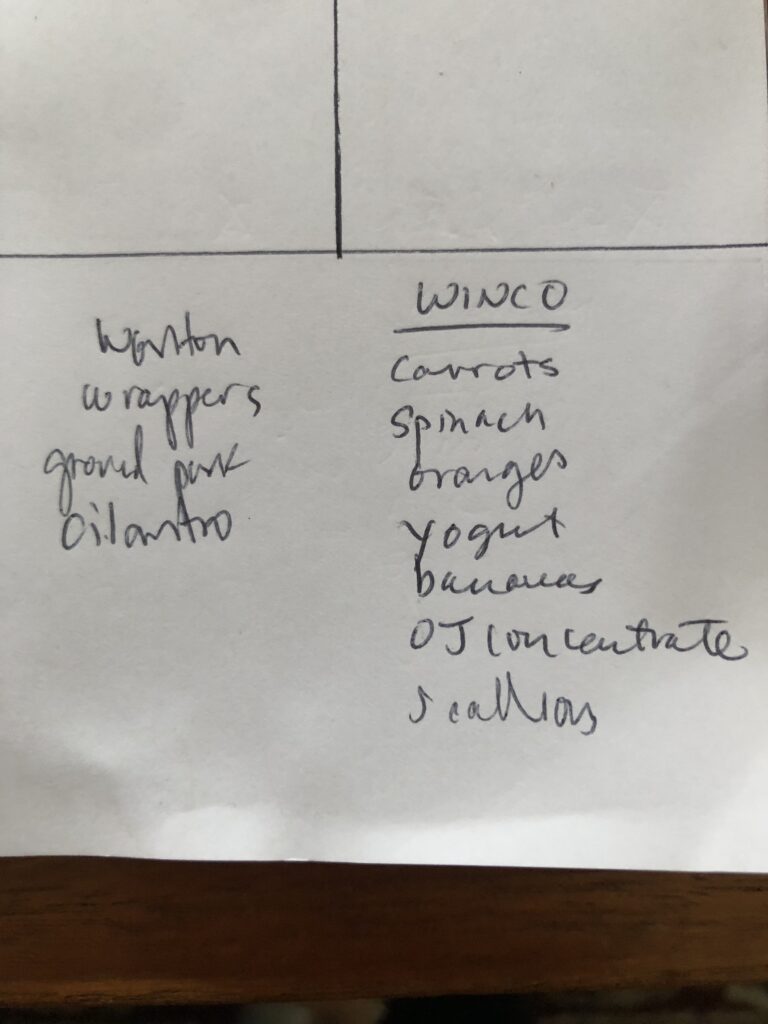 wonton
wrappers
ground pork
cilantro
WINCO
carrots
spinach
oranges
yogurt
bananas
OJ concentrate
scallions